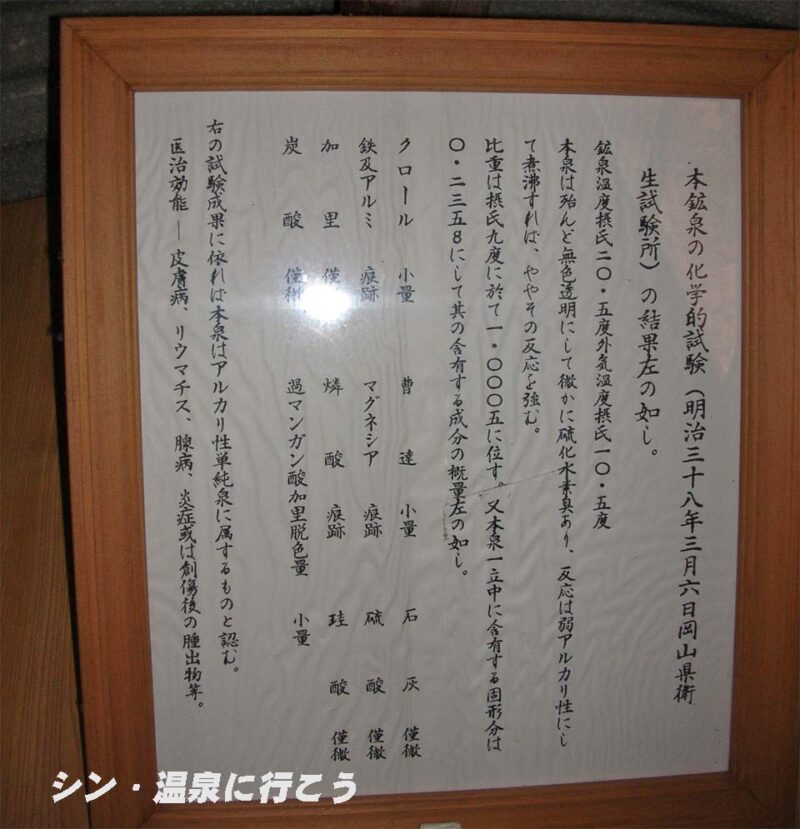 本鉱泉の化学的試験（明治三十八年三月六日岡山県衛
生試験所）の結果左の如し。
鉱泉温度摂氏二〇・五度外気温度摂氏一〇・五度
本泉は殆んど無色透明にして微かに硫化水素臭あり、反応は弱アルカリ性にし
て煮沸すれば、ややその反応を強む。
比重は摂氏九度に於て一・〇〇〇五に位す。又本泉一立中に含有する固形分は
〇・二三五8にして其の含有する成分の概量左の如し。
クロール 小量 曹達 小量 石灰 僅微
鉄及アルミ 痕跡 マグネシア 痕跡 硫酸 僅微
加里 僅 燐酸 痕跡 珪酸 僅微
炭酸 僅微 過マンガン酸加里脱色量 小量
右の試験成果に依れば本泉はアルカリ性単純泉に属するものと認む。
医治効能 ― 皮膚病、リウマチス、腺病、炎症或は創傷後の腫出物等。
シン・温泉に行こう